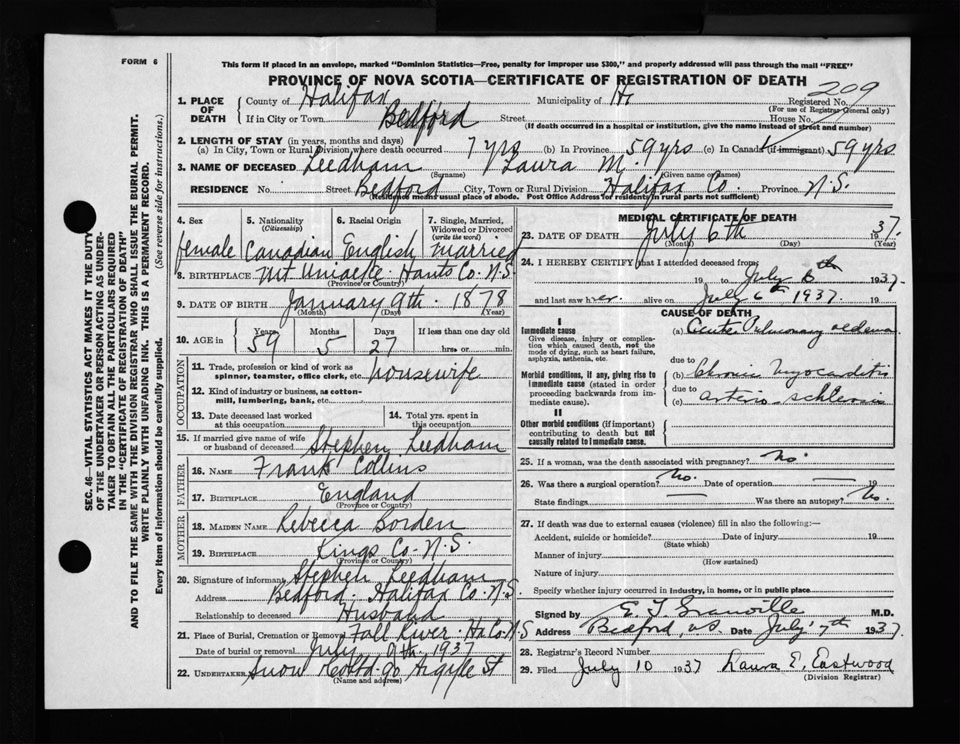 FORM 6
This form if placed in an envelope, marked "Dominion Statistics—Free, penalty for improper use $300," and properly addressed will pass through the mail "FREE"
PROVINCE OF NOVA SCOTIA—CERTIFICATE OF REGISTRATION OF DEATH
209
1. PLACE OF DEATH
County of Halifax Municipality of Registered No.
(For use of Registrar General only)
If in City or Town Bedford Street House No.
(If death occurred in a hospital or institution, give the name instead of street and number)
2. LENGTH OF STAY (in years, months and days)
(a) In City, Town or Rural Division, where death occurred 7 yrs (b) In Province 59 yrs (c) In Canada (if immigrant) 59 yrs
3. NAME OF DECEASED Leedham Laura M.
(Surname) (Given name or names)
RESIDENCE No. Street Bedford City, Town or Rural Division Halifax Co. Province N.S.
(Residence means usual place of abode. Post Office Address for residents in rural parts not sufficient)
4. Sex 5. Nationality (Citizenship) 6. Racial Origin 7. Single, Married, Widowed or Divorced (write the word)
female Canadian English Married
8. BIRTHPLACE Mt Uniacke. Hants Co. N.S.
(Province or Country)
9. DATE OF BIRTH January 9th. 1878
(Month) (Day) (Year)
10. AGE in Years Months Days If less than one day old
59 5 27 hrs. or min.
OCCUPATION
11. Trade, profession or kind of work as spinner, teamster, office clerk, etc. housewife
12. Kind of industry or business, as cotton-mill, lumbering, bank, etc.
13. Date deceased last worked at this occupation
14. Total yrs. spent in this occupation
15. If married give name of wife or husband of deceased Stephen Leedham
FATHER
16. NAME Frank Collins
17. BIRTHPLACE England
(Province or Country)
MOTHER
18. MAIDEN NAME Rebecca Borden
19. BIRTHPLACE Kings Co. N.S.
(Province or Country)
20. Signature of informant Stephen Leedham
Address Bedford. Halifax Co. N.S.
Relationship to deceased Husband
21. Place of Burial, Cremation or Removal Fall River. Ha Co. N.S
Date of burial or removal July th. 1937
22. UNDERTAKER Snow Co Ltd. 90 Argyle St
(Name and address)
MEDICAL CERTIFICATE OF DEATH
23. DATE OF DEATH July 6th 1937.
(Month) (Day) (Year)
24. I HEREBY CERTIFY that I attended deceased from:
19 to July 6th 1937
and last saw her alive on July 6th 1937. 19
CAUSE OF DEATH
I
Immediate cause
Give disease, injury or complication which caused death, not the mode of dying, such as heart failure, asphyxia, asthenia, etc.
(a) Acute Pulmonary oedema
due to
Morbid conditions, if any, giving rise to immediate cause (stated in order proceeding backwards from immediate cause).
(b) Chronic Myocarditis
due to
(c) arterio-sclerosis
II
Other morbid conditions (if important) contributing to death but not causally related to immediate cause.
25. If a woman, was the death associated with pregnancy? No.
26. Was there a surgical operation? No. Date of operation 19
State findings Was there an autopsy? No.
27. If death was due to external causes (violence) fill in also the following:—
Accident, suicide or homicide? Date of injury 19
(State which)
Manner of injury
(How sustained)
Nature of injury
Specify whether injury occurred in industry, in home, or in public place
Signed by E. T. Granville M.D.
Address Bedford, N.S. Date July 7th 1937.
28. Registrar's Record Number
29. Filed July 10 1937 Laura E. Eastwood
(Division Registrar)
SEC. 46—VITAL STATISTICS ACT MAKES IT THE DUTY
OF THE UNDERTAKER OR PERSON ACTING AS UNDER-
TAKER TO OBTAIN ALL THE PARTICULARS REQUIRED
IN THE "CERTIFICATE OF REGISTRATION OF DEATH"
AND TO FILE THE SAME WITH THE DIVISION REGISTRAR WHO SHALL ISSUE THE BURIAL PERMIT.
WRITE PLAINLY WITH UNFADING INK. THIS IS A PERMANENT RECORD.
Every item of information should be carefully supplied. (See reverse side for instructions.)